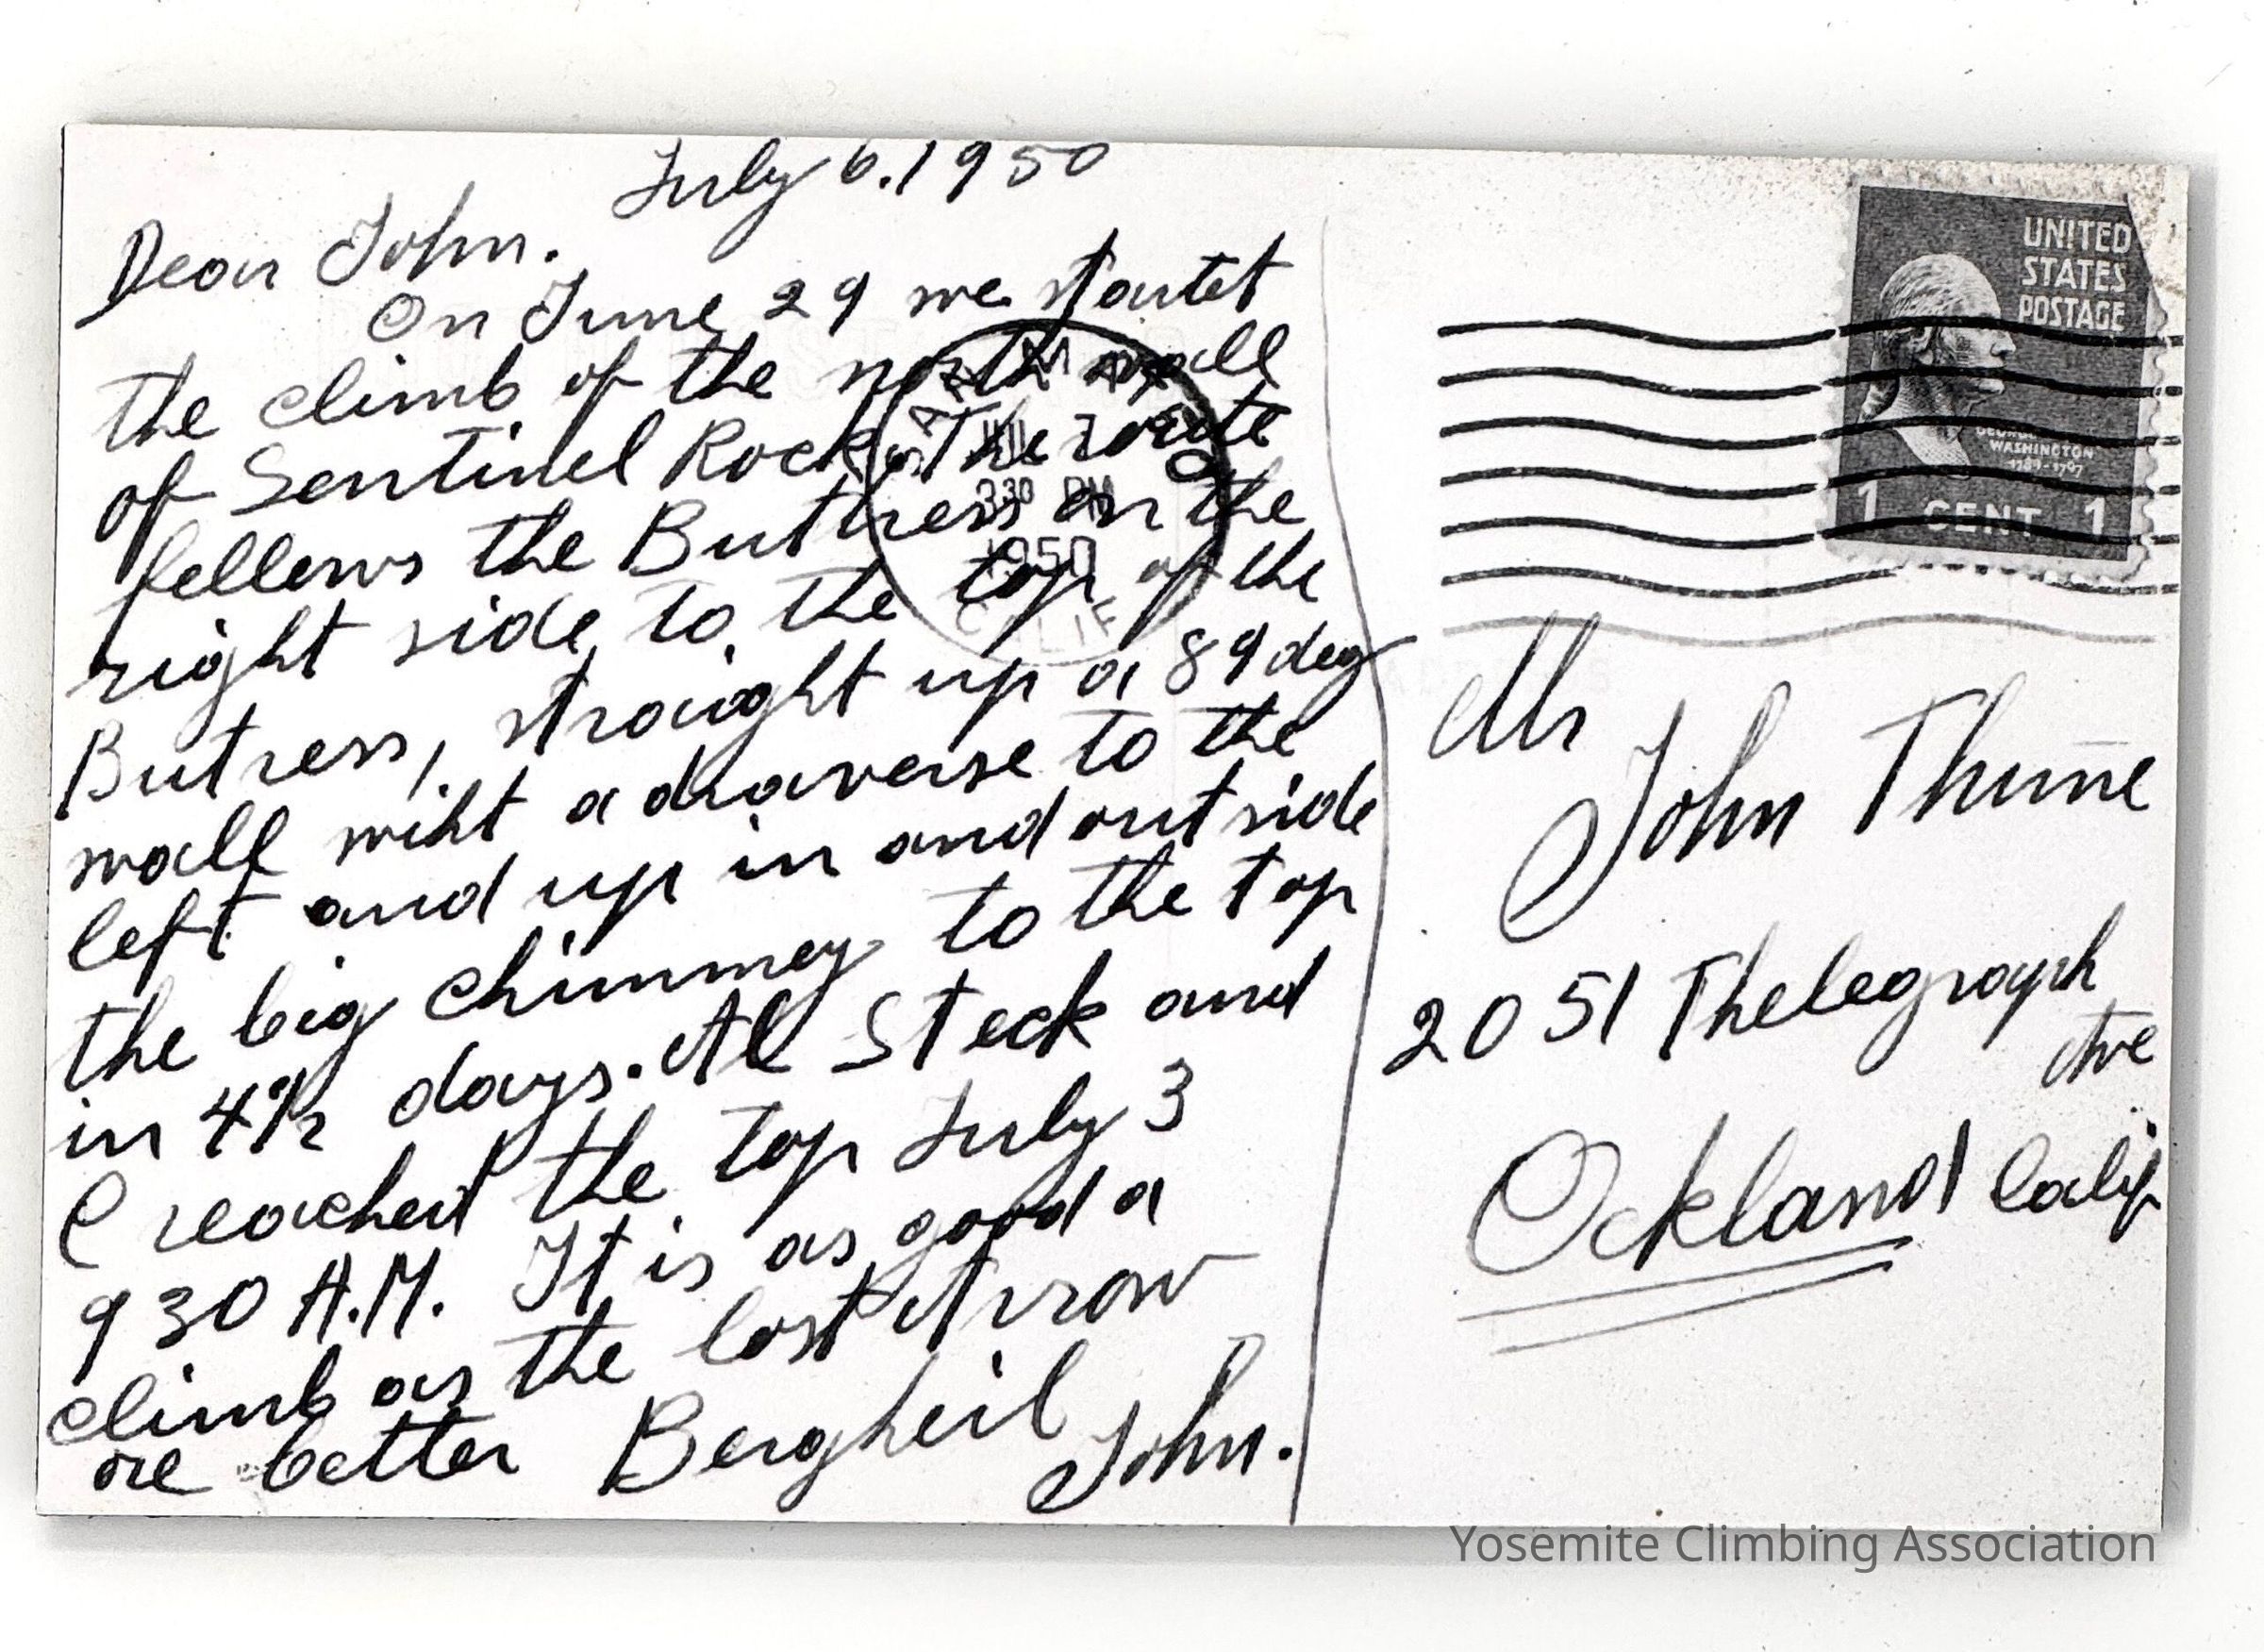 July 6. 1950
Dear John.
On June 29 we startet
the climb of the north wall
of Sentinel Rock. The route
fellows the Buttress on the
right side, to, the top of the
Butress, straight up a 89 deg
wall wiht a draverse to the
left and up in and outside
the big chimney to the top
in 4½ days. Al Steck and
I reachet the top July 3
930 A.M. It is as good a
climb as the lost Arrow
ore better Bergheil John.
SAN MATEO
JUL 7
330 PM
1950
CALIF
UNITED
STATES
POSTAGE
GEORGE
WASHINGTON
1789-1797
1 CENT 1
Mr
John Thune
2051 Thelegraph
Ave
Ockland Calif
Yosemite Climbing Association